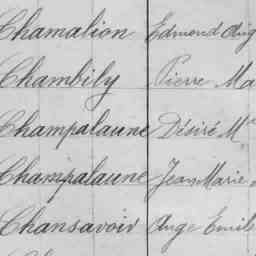 Chamalion Edmond Aug
Chambily Pierre Ma
Champalaune Désiré M
Champalaune Jean Marie
Chansavoir Ange Emil